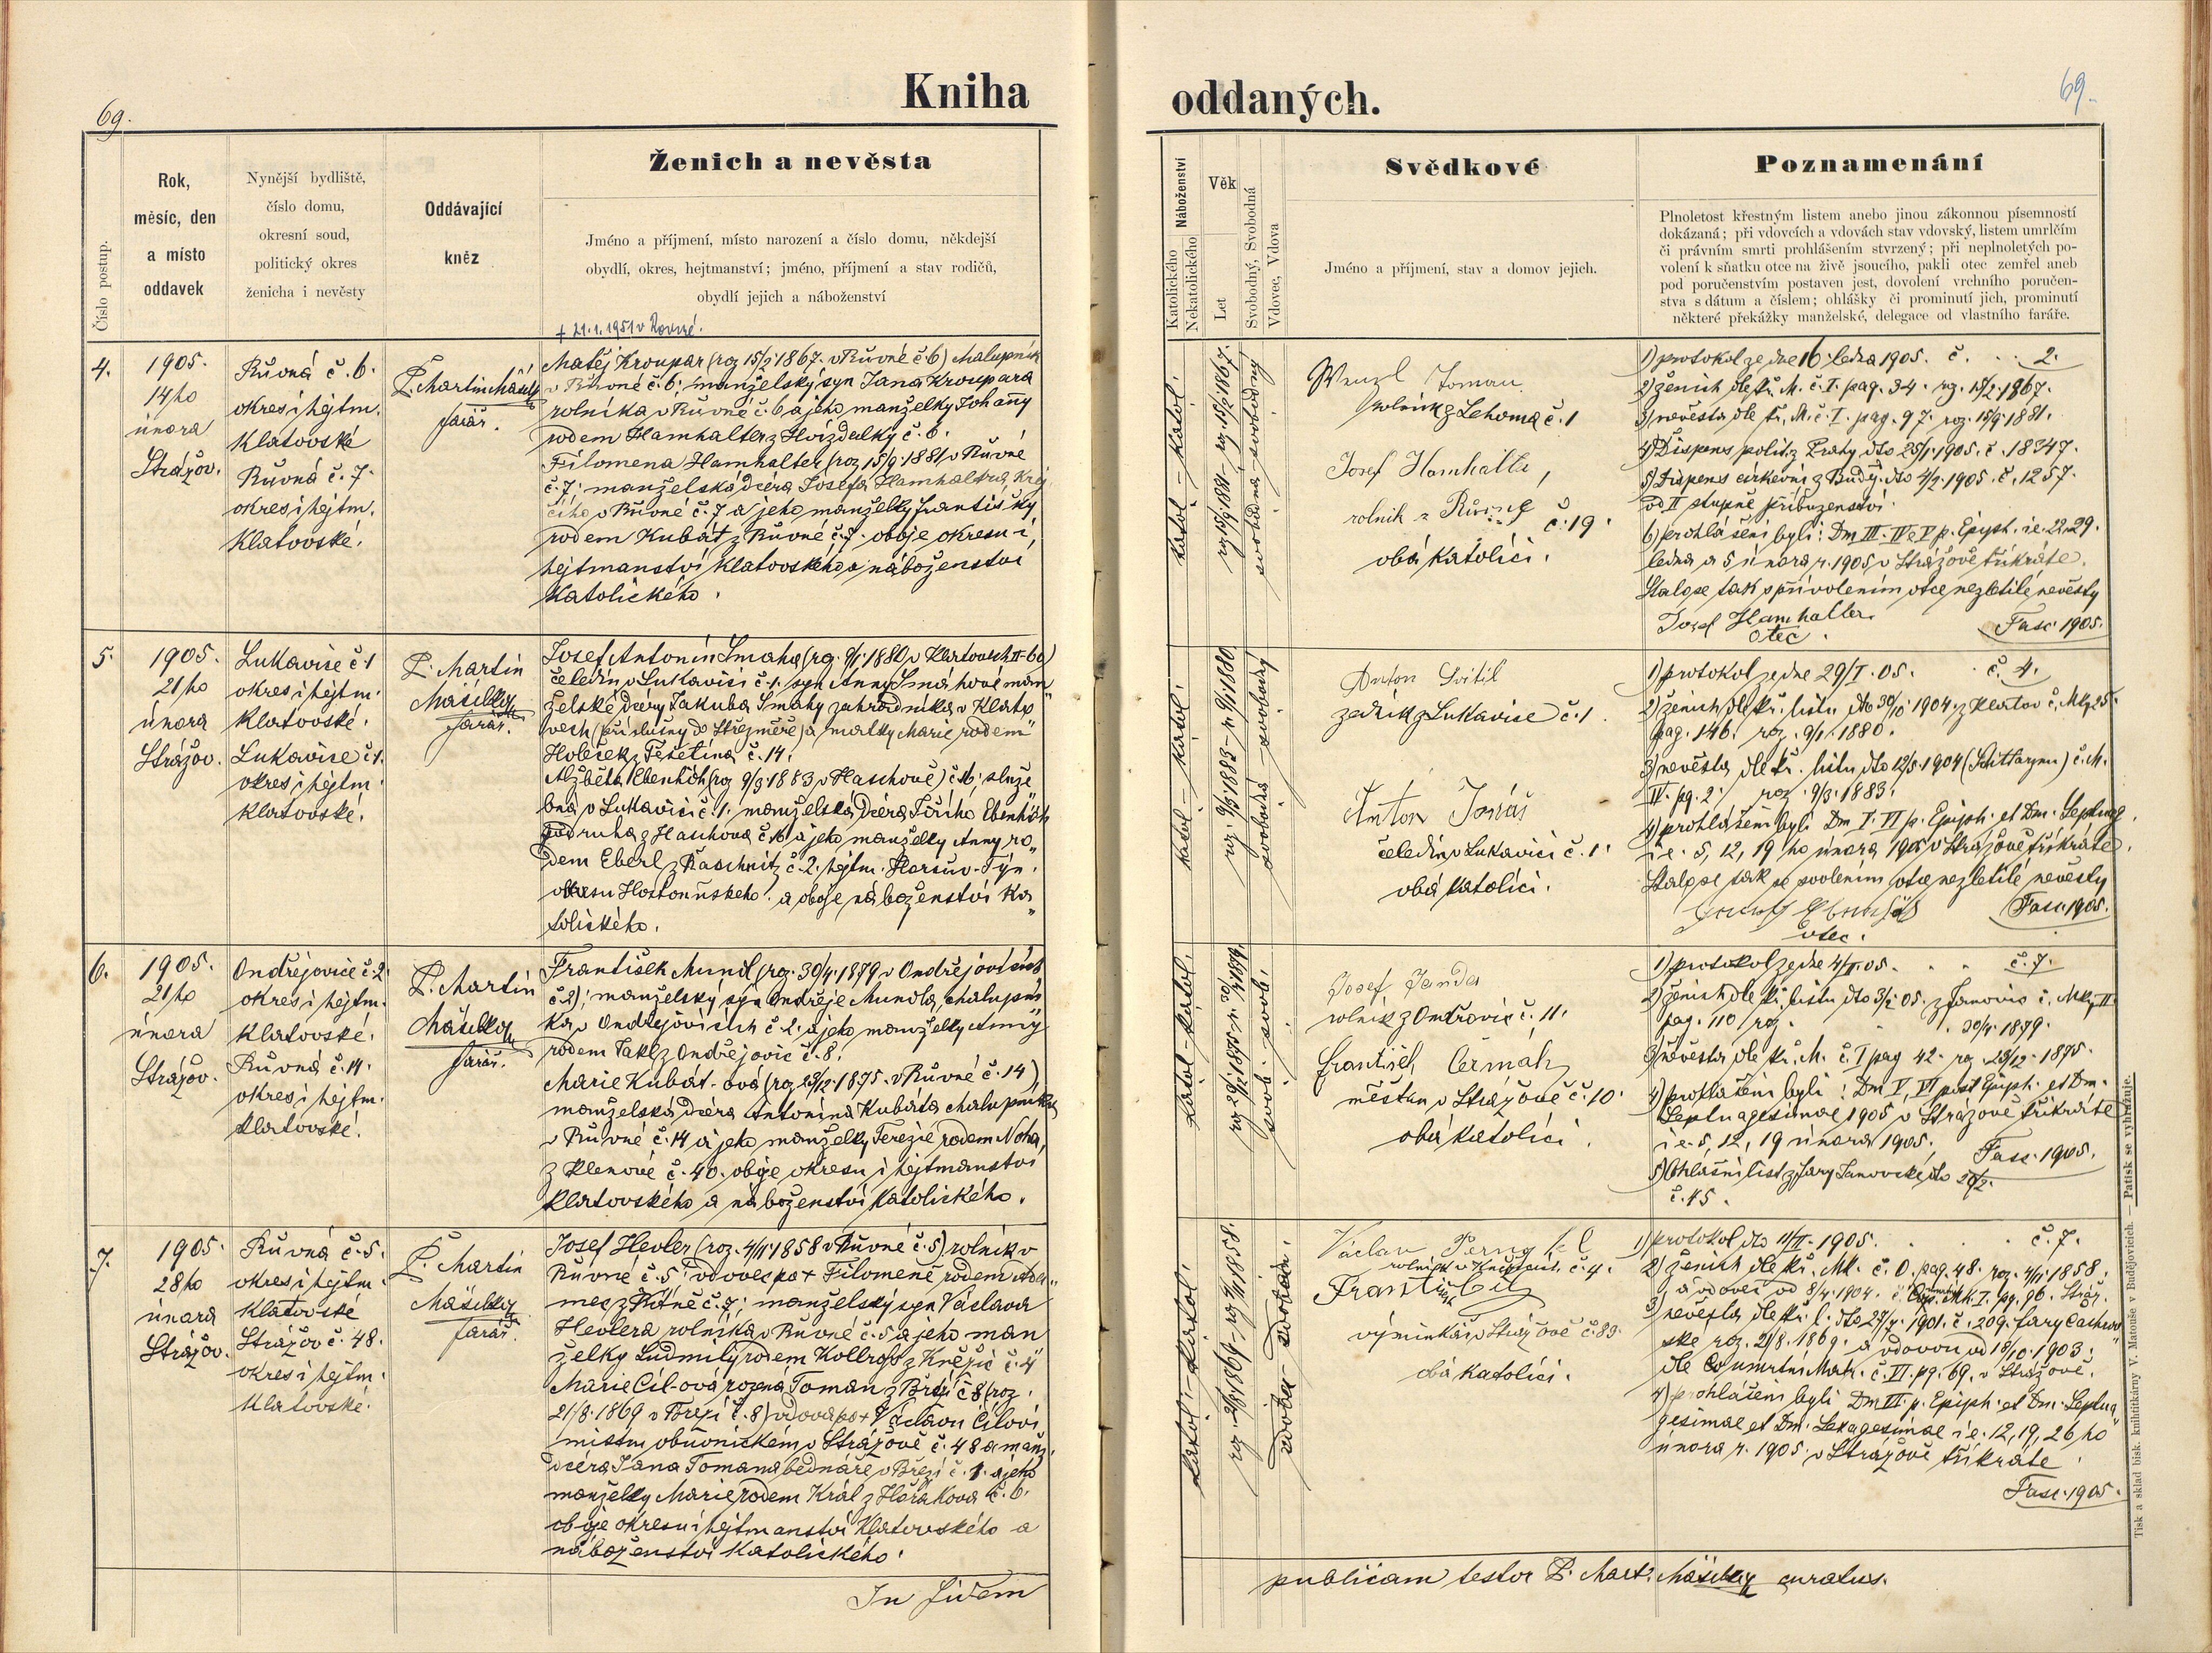 69.
Kniha
oddaných.
69.
Číslo postup.
Rok,
měsíc, den
a místo
oddavek
Nynější bydliště,
číslo domu,
okresní soud,
politický okres
ženicha i nevěsty
Oddávající
kněz
Ženich a nevěsta
Jméno a příjmení, místo narození a číslo domu, někdejší
obydlí, okres, hejtmanství; jméno, příjmení a stav rodičů,
obydlí jejich a náboženství
Náboženství
Katolického
Nekatolického
Věk
Let
Svobodný, Svobodná
Vdovec, Vdova
Svědkové
Jméno a příjmení, stav a domov jejich.
Poznamenání
Plnoletost křestným listem anebo jinou zákonnou písemností
dokázaná; při vdovcích a vdovách stav vdovský, listem umrlčím
či právním smrti prohlášením stvrzený; při neplnoletých po-
volení k sňatku otce na živě jsoucího, pakli otec zemřel aneb
pod poručenstvím postaven jest, dovolení vrchního poručen-
stva s dátum a číslem; ohlášky či prominutí jich, prominutí
některé překážky manželské, delegace od vlastního faráře.
4.
1905.
14ho
února
Strážov.
Růvná č. 6.
okres i hejtm.
Klatovské
Růvná č. 7.
okres i hejtm.
Klatovské.
P. Martin Mašek
farář.
+ 21.1.1951 v
Matěj Kroupar (roz 15/2 1867. v Růvné č 6) chalupník
v Růvné č. 6. manželský syn Jana Kroupara
rolníka v Růvné č. 6 a jeho manželky Johanny
rodem Hamhalter z Hvízdalky č. 6.
Filomena Hamhalter (roz 15/9. 1881 v Růvné
č. 7; manželská dcera Josefa Hamhaltra, Krej
čího v Růvné č. 7 a jeho manželky Františky
rodem Kubát z Růvné č. 7. oboje okresu i
hejtmanství Klatovského a náboženství
Katolického.
Katol. – Katol.
roz 15/9 1881 – roz 15/2 1867.
svobodná – svobodný
Wenzl Toman
rolník z Lehoma č. 1
Josef Hamhalter,
rolník z Růvné č. 19.
obá Katolíci.
1) protokol ze dne 16. ledna 1905. č. . . 2.
2) ženich dle kř. M. č. I. pag. 34. rz. 15/2. 1867.
3) nevěsta dle kř. M. č. I. pag. 97. roz. 15/9 1881.
4) Dispens polit. z Prahy dto 25/1. 1905. č. 18347.
5) Dispens církevní z Buděj. dto 4/2. 1905. č. 1257.
od II stupně příbuzenství.
6) prohlášeni byli: Dm III. IV e V p. Epiph. i e. 22. 29.
ledna a 5 února r. 1905 v Strážově tříkráte.
Stalo se tak s přivolením otce nezletilé nevěsty
Josef Hamhalter
otec.
Fasc 1905.
5.
1905.
21ho
února
Strážov.
Lukavice č 1
okres i hejtm.
Klatovské.
Lukavice č 1.
okres i hejtm.
Klatovské.
P. Martin
farář.
Josef Antonín Šmaha (rz. 9/1. 1880 v Klatovech II-60)
čeledín v Lukavici č. 1. syn Anny Šmahové man
želské dcery Jakuba Šmahy zahradníka v Klato
vech (příslušný do Střezměře) a matky Marie rodem
Holeček z Tešetína č. 14.
Alžběta Ebenhöh (roz 9/3. 1883 v Haschově) č 16; služe
bná v Lukavici č. 1. manželská dcera Jiřího Ebenhöh
podruha z Haschova č. 16 a jeho manželky Anny ro
dem Eberl z Raschnitz č. 2. hejtm. Horšův-Týn.
okresu Hostouňského. a oboje náboženství Ka
tolického.
Katol. – Katol.
roz. 9/3. 1883 – n 9/1. 1880
svobodná – svobodný
Anton Svitil
zedník z Lukavice č. 1.
Anton Jonáš
čeledín v Lukavici č. 1.
obá Katolíci.
1) protokol ze dne 29/I. 05. č. 4.
2) ženich dle kř. listu dto 30/10. 1904. z Klatov č. Mk 25
pag. 146. roz. 9/1. 1880.
3) nevěsta dle kř. listu dto 12/5. 1904 č. M.
IV. pg. 2. roz. 9/3. 1883.
4) prohlášeni byli Dm V. VI p. Epiph. et Dm. Septuag
i e. 5, 12, 19 ho února 1905 v Strážově tříkráte.
Stalo se tak se svolením otce nezletilé nevěsty
otec.
Fasc. 1905.
6.
1905.
21ho
února
Strážov.
Ondřejovice č. 2.
okres i hejtm.
Klatovské.
Růvná č. 14.
okres i hejtm.
Klatovské.
P. Martin
farář.
František Mundl (roz. 30/4. 1879 v Ondřejovicích
č 2); manželský syn Ondřeje Mundla, chalupní
ka v Ondřejovicích č. 2. a jeho manželky Anny
rodem Takl z Ondřejovic č. 8.
Marie Kubát-ová (roz 23/12. 1875. v Růvné č. 14)
manželská dcera Antonína Kubáta chalupníka
v Růvné č. 14 a jeho manželky Terezie rodem Noha,
z Klenové č. 40. oboje okresu i hejtmanství
Klatovského a náboženství Katolického.
Katol. – Katol.
svob. – svob.
Josef Janda
rolník z Ondřovic č. 11.
František Čermák
měšťan v Strážově č. 10.
obá Katolíci.
1) protokol ze dne 4/II. 05. . . č. 7.
2) ženich dle kř. listu dto 3/2. 05. z Janovic č. Mk II
pag. 110 roz. . . 30/4. 1879.
3) nevěsta dle kř. M. č. I pag 42. roz. 23/12. 1875.
4) prohlášeni byli: Dm V, VI post Epiph. et Dm.
Septuagesimae 1905 v Strážově tříkráte
i e. 5, 12, 19 února 1905.
5) Ohlašní list z fary Janovické dto 20/2.
č. 45.
Fasc. 1905.
7.
1905.
28ho
února
Strážov.
Růvná č. 5.
okres i hejtm.
Klatovské
Strážov č. 48.
okres i hejtm.
Klatovské.
P. Martin
farář.
Josef Hevler (roz. 4/11 1858 v Růvné č. 5) rolník v
Růvné č. 5; vdovec po + Filomeně rodem Ada
mec z č. 7; manželský syn Václava
Hevlera rolníka v Růvné č. 5 a jeho man
želky Ludmily rodem Kollross z Kněžic č. 4
Marie Cíl-ová rozena Toman z Březí č 8 (roz.
21/8. 1869 v Březí č. 8) vdova po + Václavu Cílovi
mistru obuvnickém v Strážově č. 48 a manž.
dcera Jana Tomana bednáře v Březí č. 1. a jeho
manželky Marie rodem Král z Hořakova č. 6.
oboje okresu i hejtmanství Klatovského a
náboženství Katolického.
Katol. – Katol.
roz. 21/8 1869 – roz 4/11 1858.
vdova – vdovec.
Václav
rolník v č. 4.
František Cíl
výminkář v Strážově č. 80.
obá Katolíci.
1) protokol dto 11/II. 1905. . . . č. 7.
2) ženich dle kř. Mk. č. O. pag. 48. roz. 4/11 1858.
3) nevěsta dle kř. l. dto 27/7. 1901. č. 209. fary
ské roz. 21/8. 1869. a vdovou od 18/10. 1903.
dle umrtní Matr. č. II. pg. 69. v Strážově.
4) prohlášeni byli Dm VI. p. Epiph. et Dm. Septua
gesimae et Dm. Sexagesimae i e. 12, 19, 26 ho
února r. 1905. v Strážově tříkráte.
Fasc. 1905.
In fidem
publicam testor P. Mart. curatus.
Tisk a sklad bisk. knihtiskárny V. Matouše v Budějovicích. — Patisk se vyhražuje.